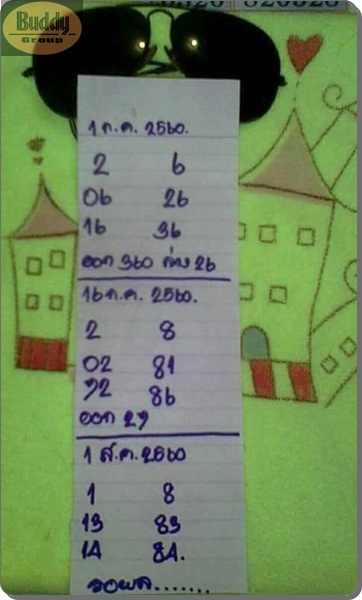 Buddy
Group
820328
1 ก.ค. 2560.
2 6
06 26
16 36
ออก 360 ล่าง 26
16 ก.ค. 2560.
2 8
02 81
92 86
ออก 29
1 ส.ค. 2560
1 8
13 83
14 84.
รอผล.......